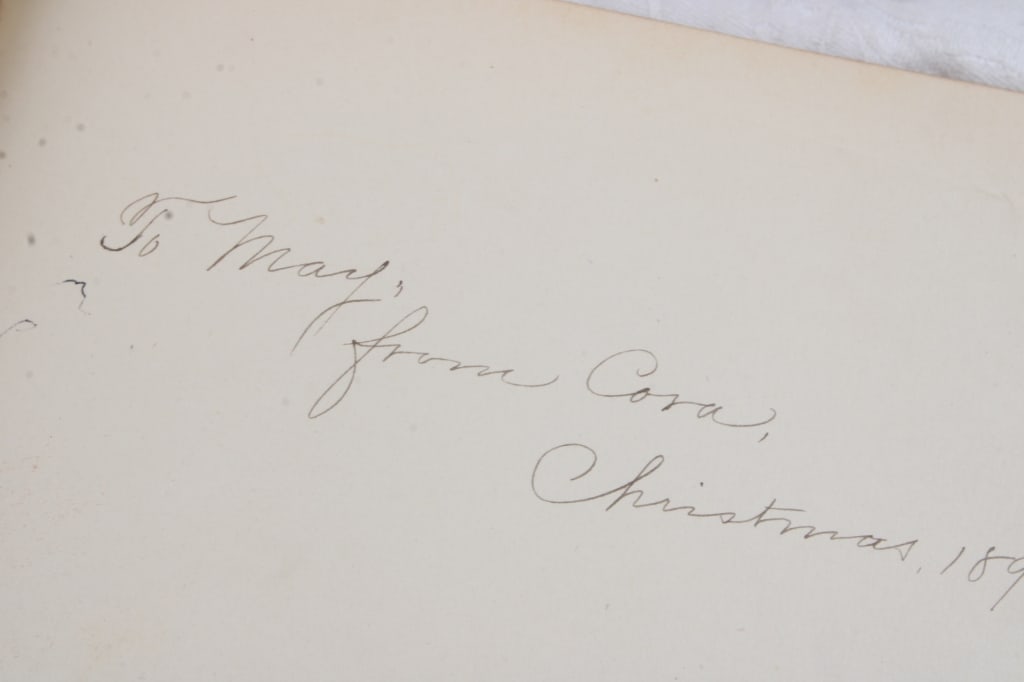 To May,
from Cora,
Christmas, 189